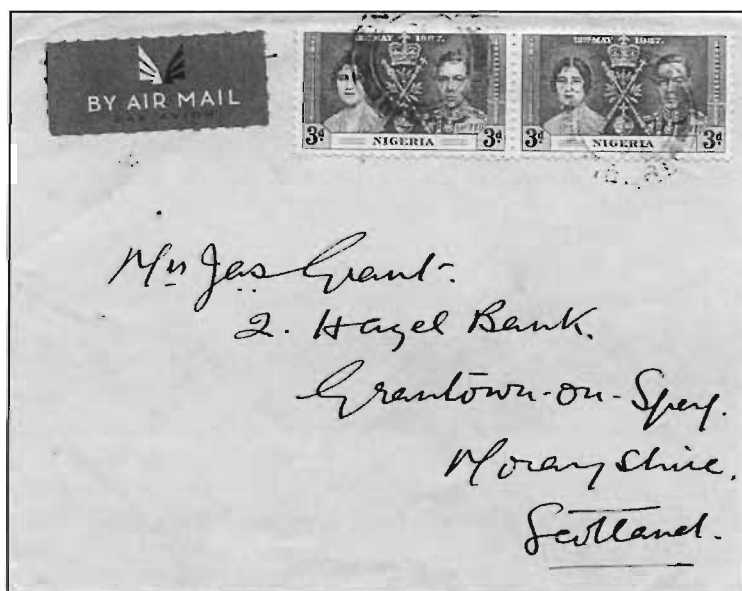 BY AIR MAIL
PAR AVION
12TH MAY 1937.
3d NIGERIA 3d
12TH MAY 1937.
3d NIGERIA 3d
Mrs Jas Grant.
2. Hazel Bank.
Grantown-on-Spey.
Morayshire.
Scotland.